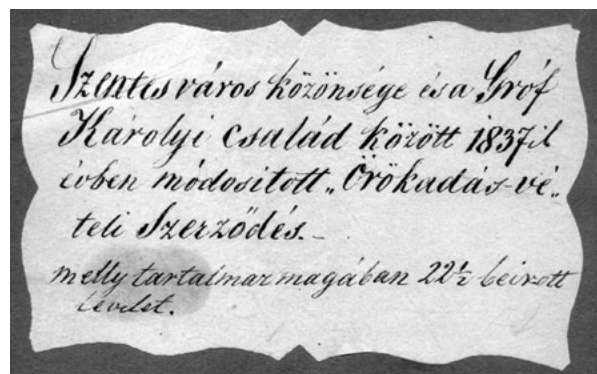 Szentes város közönsége és a Gróf
Károlyi család között 1837ik
évben módosított „Örökadás-vé„
teli Szerződés.–
melly tartalmaz magában 22½ beirott
levelet.